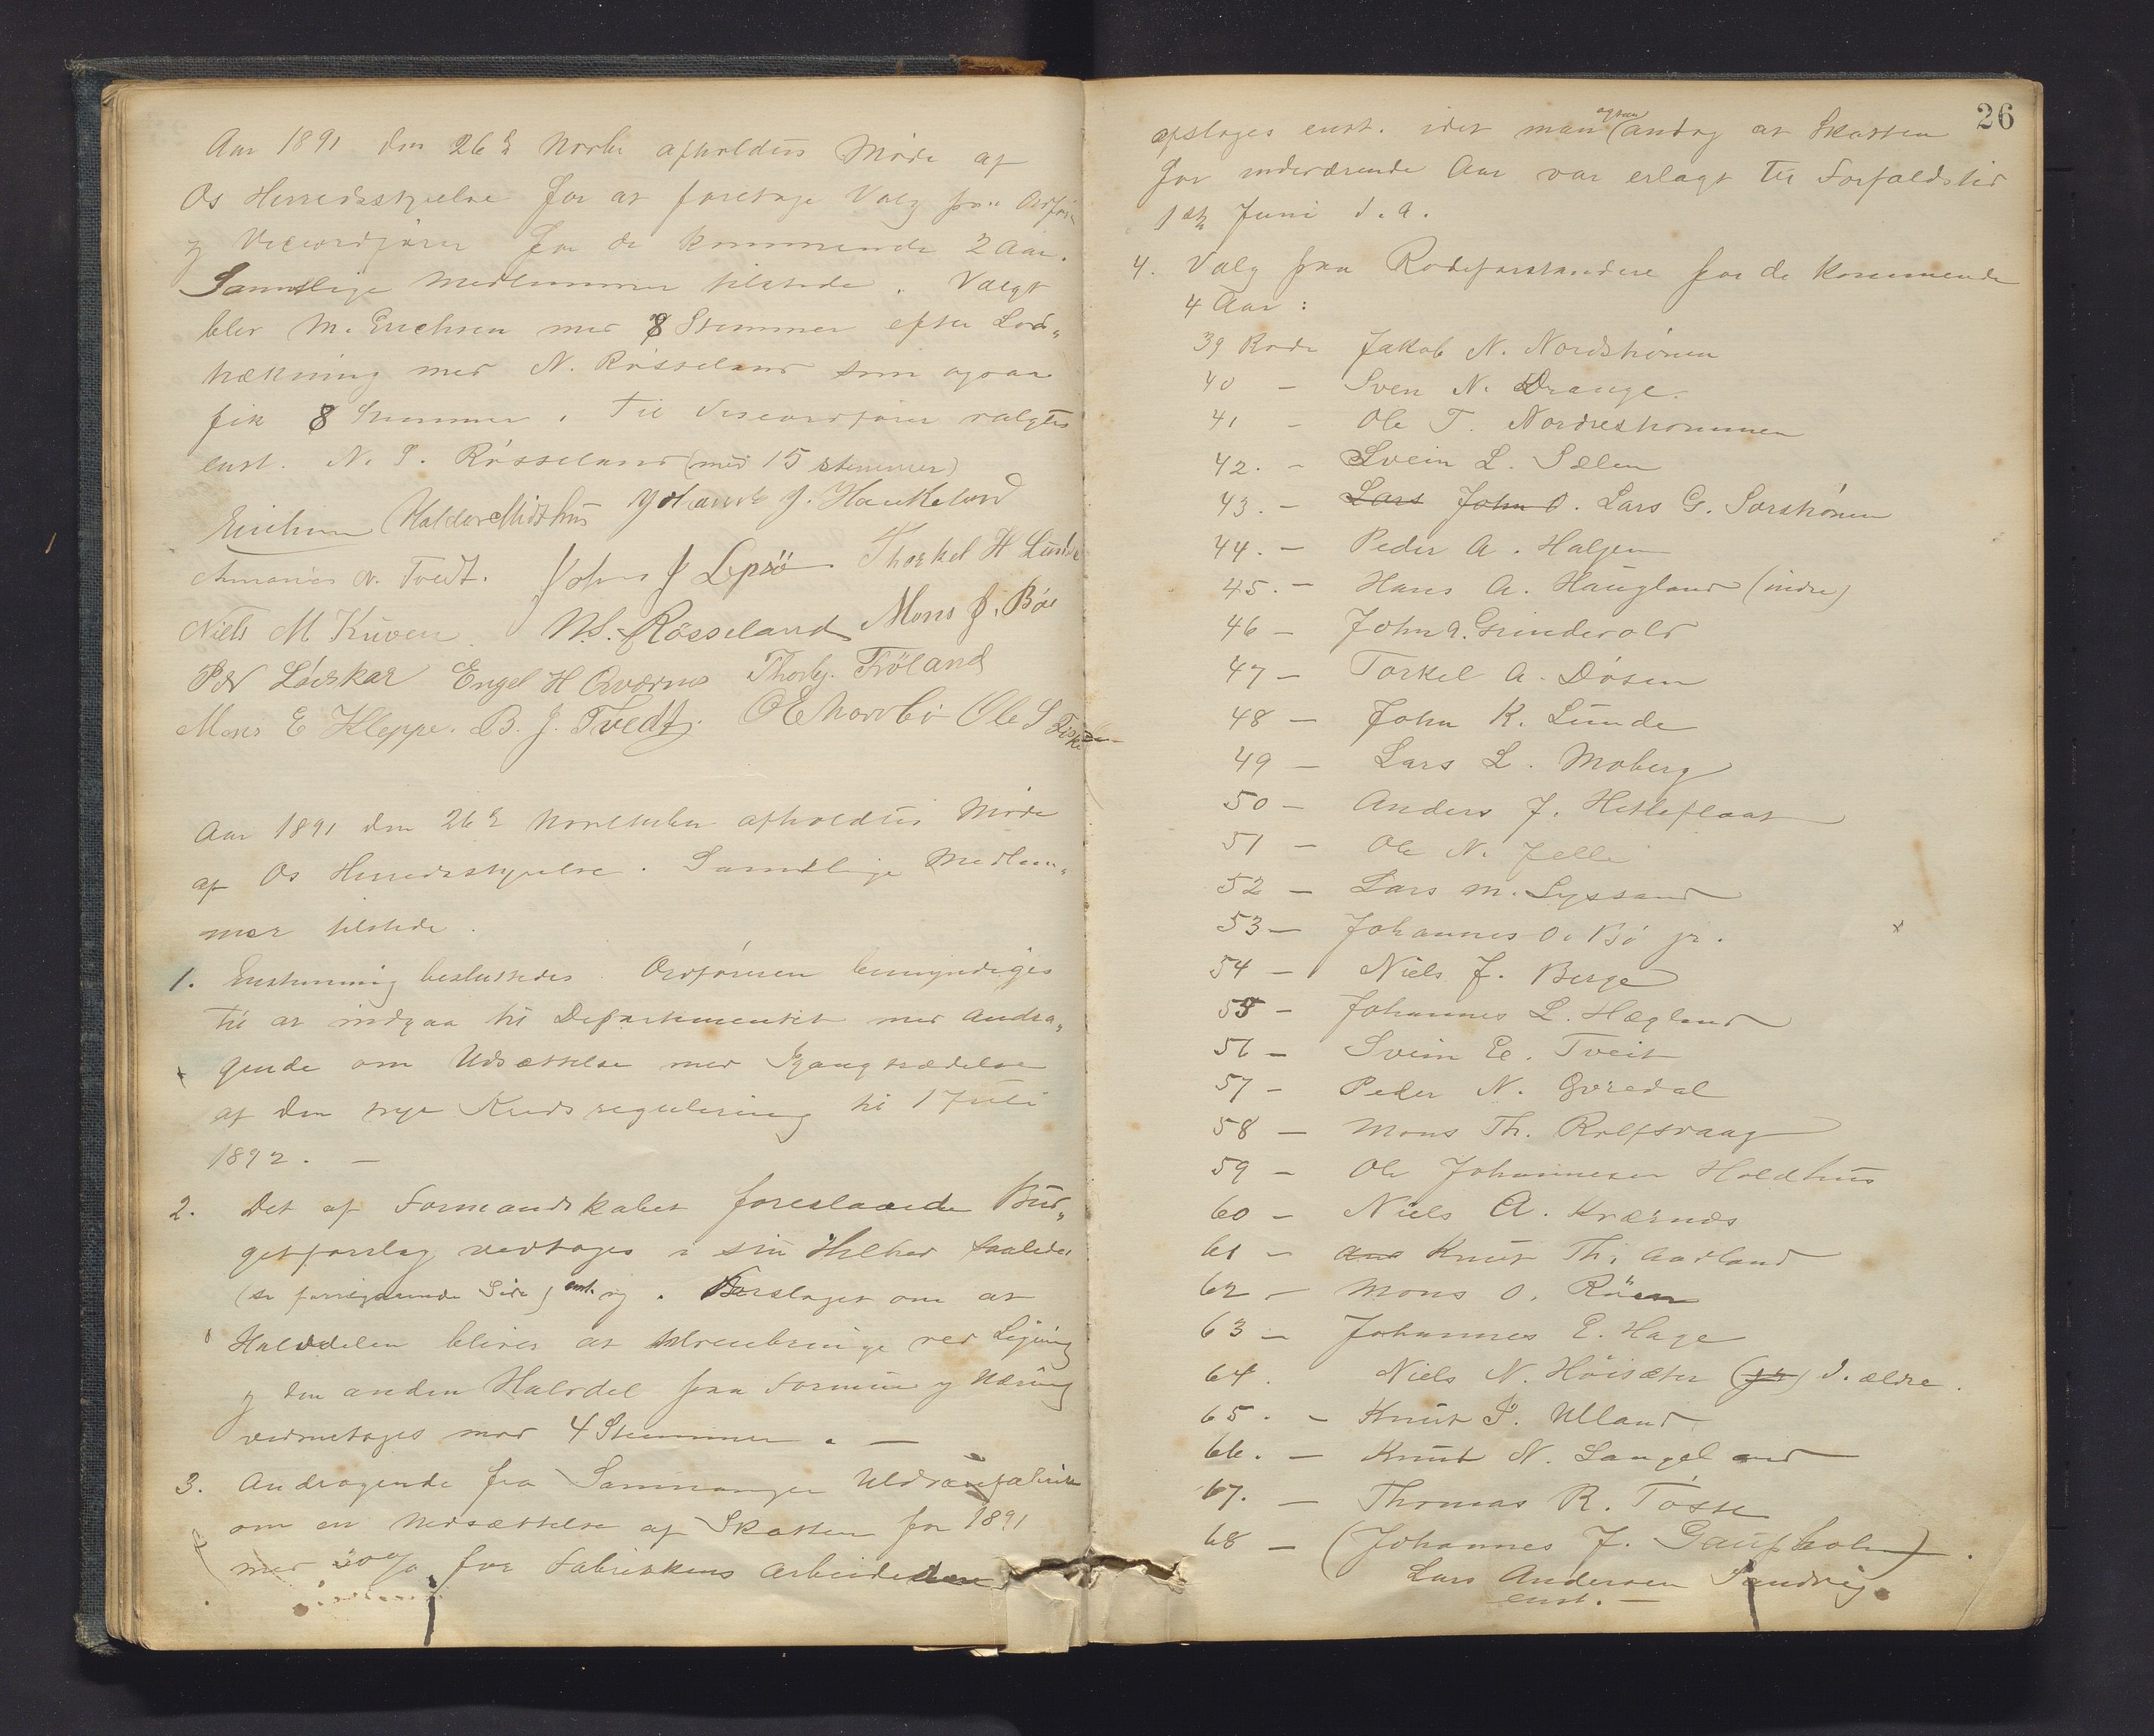 Aar 1891 den 26 Novbr afholdtes Møde af
Os Herredsstyrelse for at foretage Valg paa Ordfører
og Viceordfører for de kommende 2 Aar.
Samtlige Medlemmer tilstede. Valgt
blev M. Erichsen med 8 Stemmer efter Lod„
trækning med N. Røsseland som ogsaa
fik 8 Stemmer. Til Viceordfører valgtes
enst. N. S. Røsseland (med 15 stemmer)
Erichsen Haldor Midthus Johannes J. Haukeland
Annanias N. Tvedt. John J Lepsö Thorkel H Lunde
Niels M Kuven N.S. Røsseland Mons J. Böe
Engel H Qværnes Thorbj. Fröland
Mons E Kleppe. B. J. Tvedt. Ole S
Aar 1891 den 26 November afholdtes Møde
af Os Herredsstyrelse. Samtlige Medlem„
mer tilstede.
1. Enstemmig besluttedes. Ordføreren bemyndiges
til at indgaa til Departementet med Andra„
gende om Udsættelse med Igangtrædelse
af den nye Kredsregulering til 1 Juli
1892. —
2. Det af Formandskabet foreslaaede Bud„
getforslag vedtoges i sin Helhed saaledes
(se foregaaende Side) enst. og. Forslaget om at
Halvdelen bliver at udrede ved Ligning
og den anden Halvdel paa Formue og Næring
vedtoges mod 4 Stemmer. —
3. Andragende fra Samnanger Uldvarefabrik
om en Nedsættelse af Skatten for 1891
med for Fabrikkens Arbeidere
26
afsloges enst. idet man ogsaa antog at Skatten
for indeværende Aar var erlagt til Forfaldstid
1ste Juni d. a.
4. Valg paa Rodeforstandere for de kommende
4 Aar:
39 Rode Jakob N. Nordstrønen
40 — Sven N. Drange.
41 — Ole T. Nordrestrømmen
42. — Svein L. Sælen
43. — Lars John O. Lars G. Sørstrønen
44. — Peder A. Haljem
45. — Hans A. Haugland (indre)
46 — John A. Grindevold
47 — Torkel A. Døsen
48 — John K. Lunde
49 — Lars L. Moberg
50 — Anders J. Hetleflaat
51 — Ole N. Gjelle
52 — Lars M. Lyssand
53 — Johannes O. Bø jr.
54 — Niels J. Berge
55 — Johannes L. Hægland
56 — Svein E. Tveit
57 — Peder N. Gåsdal
58 — Mons Th. Rolfsvaag
59 — Ole Johannesen Holdhus
60 — Niels A. Kværnæs
61 — Knut Th. Aadland
62 — Mons O. Röen
63 — Johannes E. Hage
64. Niels N. Høisæter (jr) d. ældre.
65. — Knut P. Ulland
66. — Knut N. Langeland
67. — Thomas R. Tøsse
68 — (Johannes J. Gaupholm).
Lars Andersen Sandvig.
enst. —